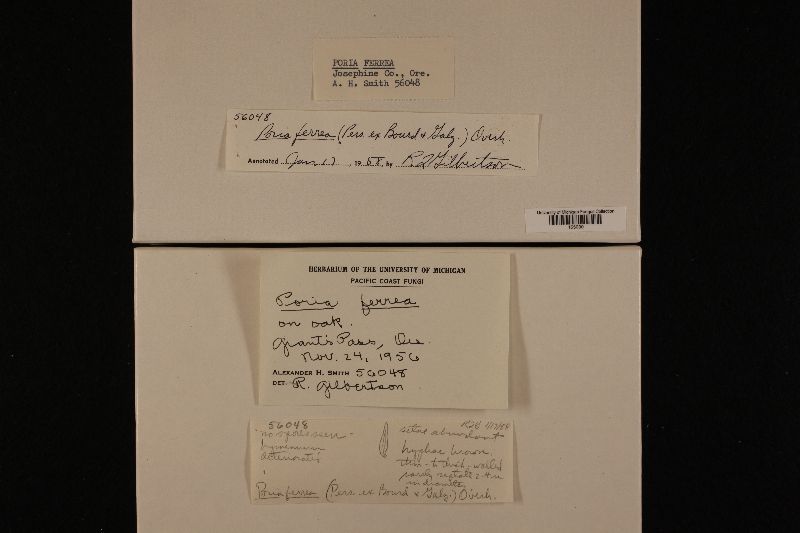 PORIA FERREA
Josephine Co., Ore.
A. H. Smith 56048
56048
Poria ferrea (Pers. ex Bourd & Galz.) Overh.
Annotated Jan 17, 1968 by R L Gilbertson
University of Michigan Fungus Collection
HERBARIUM OF THE UNIVERSITY OF MICHIGAN
PACIFIC COAST FUNGI
Poria ferrea
on oak.
Grants Pass, Ore.
Nov. 24, 1956
ALEXANDER H. SMITH 56048
DET. R. Gilbertson
56048
no spores seen -
hymenium
deteriorated
setae abundant
hyphae brown,
thin- to thick-walled
rarely septate 2-4 µ
in diameter
Poria ferrea (Pers. ex Bourd & Galz.) Overh.